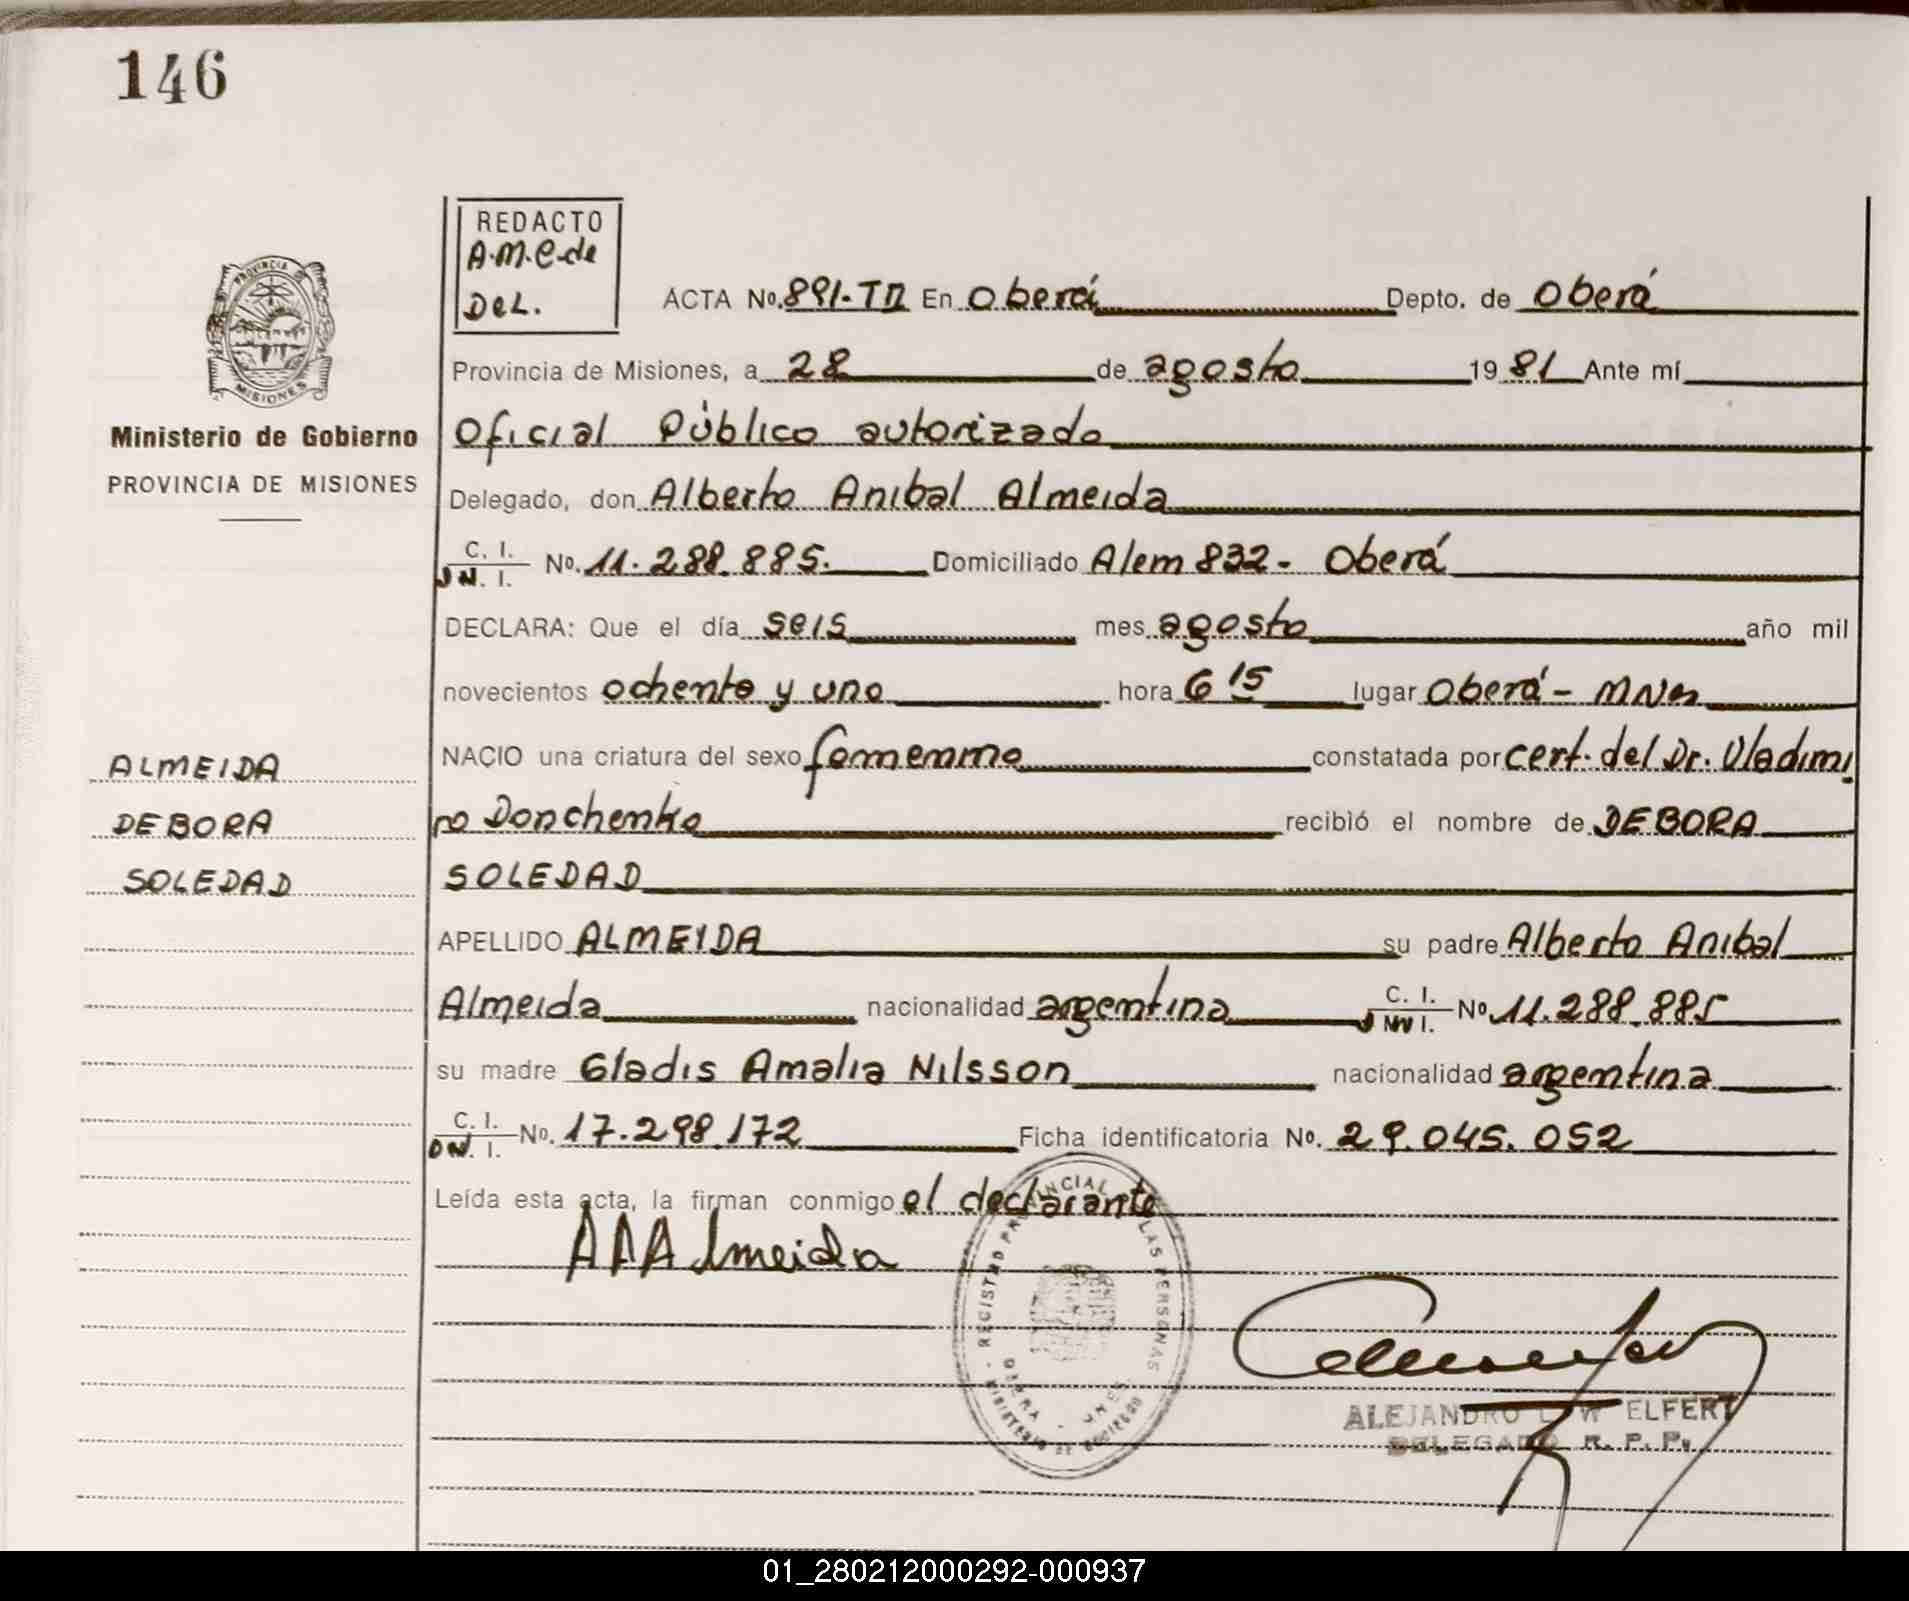 146
REDACTO
A.M.C. de
DEL.
ACTA No. 891-TII En Oberá Depto. de Oberá
PROVINCIA
MISIONES
Provincia de Misiones, a 28 de agosto 1981 Ante mí
Ministerio de Gobierno
Oficial Público autorizado
PROVINCIA DE MISIONES
Delegado, don Alberto Anibal Almeida
C. I.
DN. I. No. 11.288.885. Domiciliado Alem 832- Oberá
DECLARA: Que el día seis mes agosto año mil
novecientos ochenta y uno hora 6 15 lugar Oberá - Mnes
NACIO una criatura del sexo femenino constatada por cert. del Dr. Vladimi
ALMEIDA
ro Donchenko recibió el nombre de DEBORA
DEBORA
SOLEDAD
SOLEDAD
APELLIDO ALMEIDA su padre Alberto Anibal
Almeida nacionalidad argentina C. I.
DN I. No. 11.288.885
su madre Gladis Amalia Nilsson nacionalidad argentina
C. I.
DN. I. No. 17.298.172 Ficha identificatoria No. 29.045.052
Leída esta acta, la firman conmigo el declarante
AAAlmeida
REGISTRO PROVINCIAL LAS PERSONAS
MINISTERIO DE GOBIERNO
ALEJANDRO ELFERT
DELEGADO R. P. P.
01_280212000292-000937